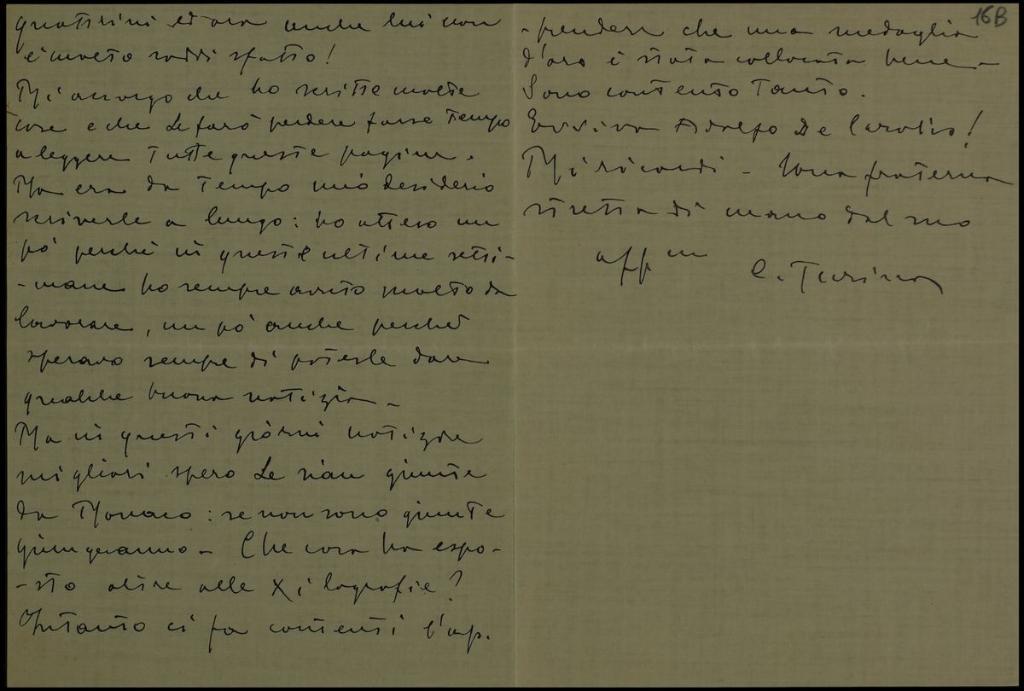 quattrini ed ora anche lui non
è molto soddisfatto!
Mi accorgo che ho scritte molte
cose e che Le farò perdere forse tempo
a leggere tutte queste pagine.
Ma era da tempo mio desiderio
scriverle a lungo: ho atteso un
pò perchè in queste ultime setti-
-mane ho sempre avuto molto da
lavorare, un pò anche perchè
speravo sempre di poterle dare
qualche buona notizia -
Ma in questi giorni notizie
migliori spero Le sian giunte
da Monaco: se non sono giunte
giungeranno - Che cosa ha espo-
-sto oltre alle Xilografie?
Intanto ci fa contenti l'ap.
16B
-prendere che una medaglia
d'oro è stata collocata bene -
Sono contento tanto.
Evviva Adolfo De Carolis!
Mi ricordi - Una fraterna
stretta di mano dal suo
aff m
C. Turina